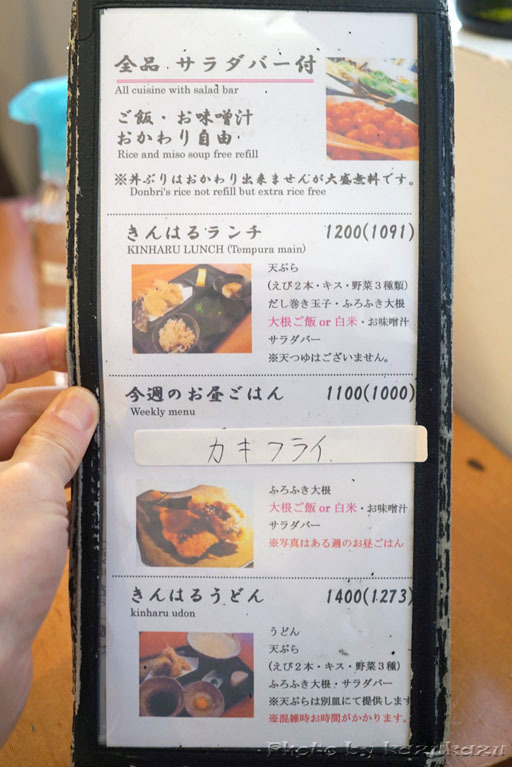 全品 サラダバー付
All cuisine with salad bar
ご飯・お味噌汁
おかわり自由
Rice and miso soup free refill
※丼ぶりはおかわり出来ませんが大盛無料です。
Donbri's rice not refill but extra rice free
きんはるランチ 1200(1091)
KINHARU LUNCH (Tempura main)
天ぷら
(えび2本・キス・野菜3種類)
だし巻き玉子・ふろふき大根
大根ご飯 or 白米・お味噌汁
サラダバー
※天つゆはございません。
今週のお昼ごはん 1100(1000)
Weekly menu
カキフライ.
ふろふき大根
大根ご飯 or 白米・お味噌汁
サラダバー
※写真はある週のお昼ごはん
きんはるうどん 1400(1273)
kinharu udon
うどん
天ぷら
(えび2本・キス・野菜3種)
ふろふき大根・サラダバー
※天ぷらは別皿にて提供します
※混雑時お時間がかかります。
Photo by kazukazu